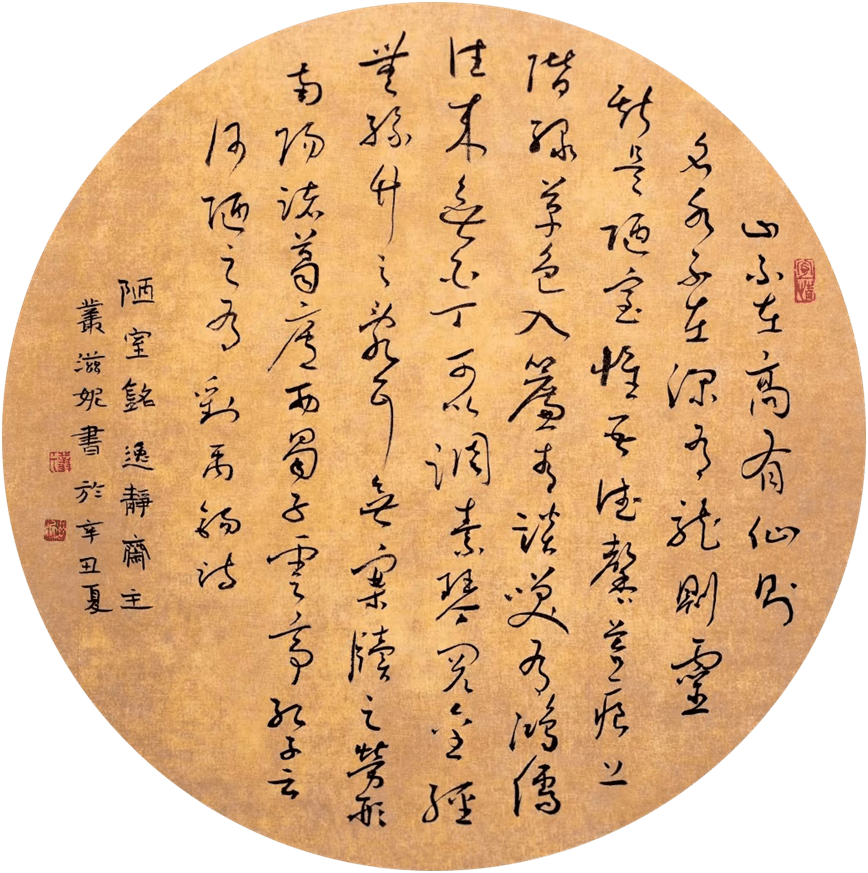 山不在高有仙則
名水不在深有龍則靈
斯是陋室惟吾德馨苔痕上
階綠草色入簾青談笑有鴻儒
往來無白丁可以調素琴閱金經
無絲竹之亂耳無案牘之勞形
南陽諸葛廬西蜀子雲亭孔子云
何陋之有劉禹錫詩
陋室銘逸靜齋主
叢滋妮書於辛丑夏